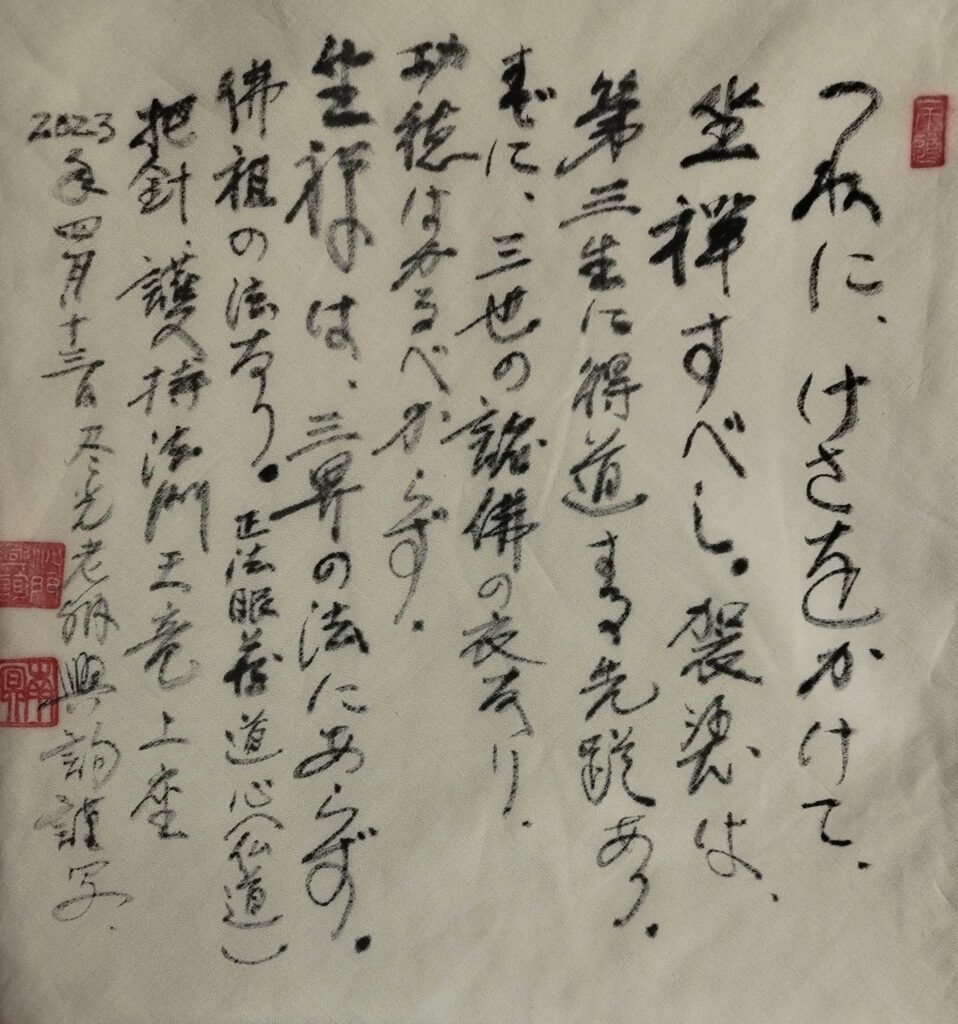 つねに、けさをかけて、
坐禪すべし。袈裟は、
第三生に得道する先蹤あり。
すでに、三世の諸佛の衣なり、
功徳はかるべからず。
坐禅は、三界の法にあらず。
佛祖の法なり。正法眼蔵道心(仏道)
把針 護持 法門 天竜 上座
2023年四月十三日 尽光老衲 興詢謹写